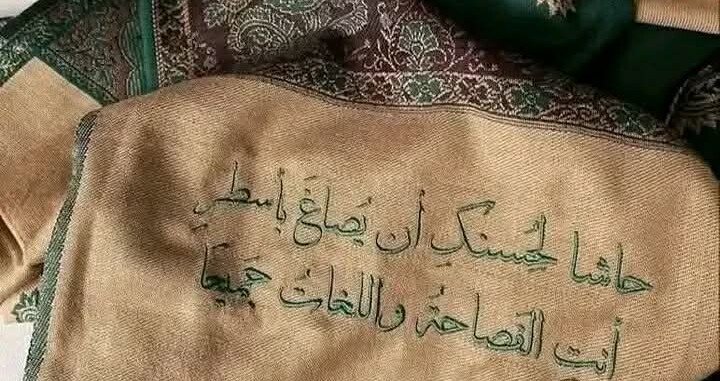 حاشا لحُسنكِ أن يُصاغَ بأسطرٍ
أنتِ الفَصاحةُ واللغاتُ جَميعَا